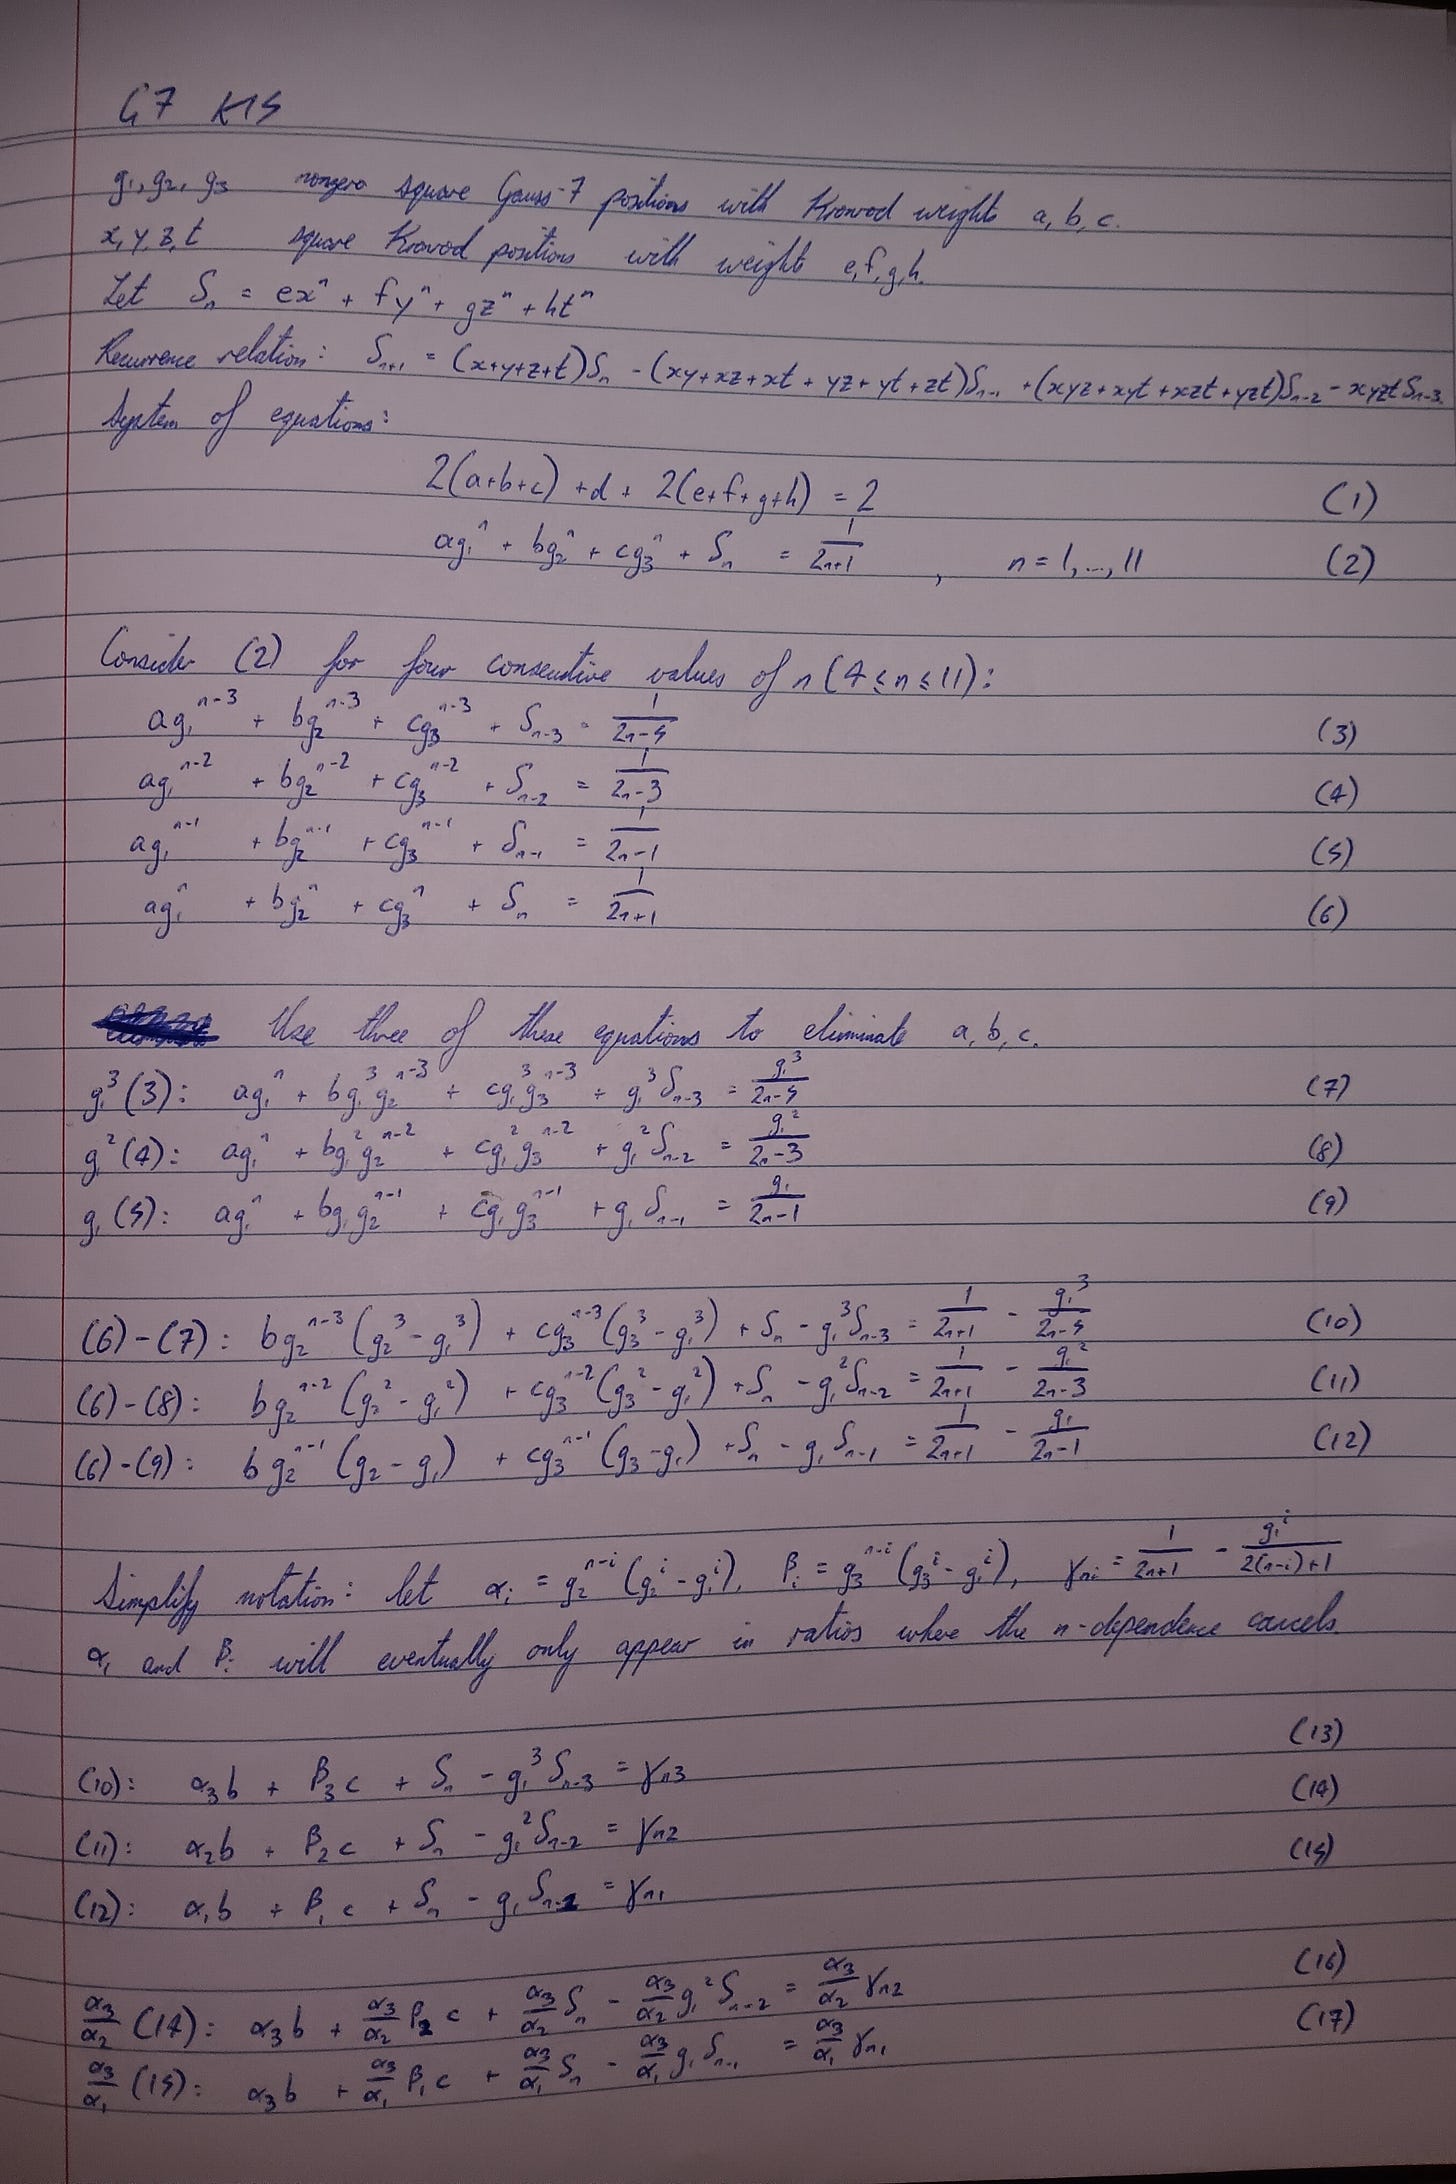 G7 K15
g₁, g₂, g₃ nonzero square Gauss-7 positions with Kronrod weights a, b, c.
x, y, z, t square Kronrod positions with weights e, f, g, h.
Let Sₙ = exⁿ + fyⁿ + gzⁿ + htⁿ
Recurrence relation: Sₙ₊₁ = (x+y+z+t)Sₙ - (xy+xz+xt+yz+yt+zt)Sₙ₋₁ + (xyz+xyt+xzt+yzt)Sₙ₋₂ - xyztSₙ₋₃.
System of equations:
2(a+b+c) + d + 2(e+f+g+h) = 2 (1)
ag₁ⁿ + bg₂ⁿ + cg₃ⁿ + Sₙ = 1/(2n+1), n = 1, ..., 11 (2)
Consider (2) for four consecutive values of n (4 ≤ n ≤ 11):
ag₁ⁿ⁻³ + bg₂ⁿ⁻³ + cg₃ⁿ⁻³ + Sₙ₋₃ = 1/(2n-5) (3)
ag₁ⁿ⁻² + bg₂ⁿ⁻² + cg₃ⁿ⁻² + Sₙ₋₂ = 1/(2n-3) (4)
ag₁ⁿ⁻¹ + bg₂ⁿ⁻¹ + cg₃ⁿ⁻¹ + Sₙ₋₁ = 1/(2n-1) (5)
ag₁ⁿ + bg₂ⁿ + cg₃ⁿ + Sₙ = 1/(2n+1) (6)
Use three of these equations to eliminate a, b, c.
g₁³(3): ag₁ⁿ + bg₁³g₂ⁿ⁻³ + cg₁³g₃ⁿ⁻³ + g₁³Sₙ₋₃ = g₁³/(2n-5) (7)
g₁²(4): ag₁ⁿ + bg₁²g₂ⁿ⁻² + cg₁²g₃ⁿ⁻² + g₁²Sₙ₋₂ = g₁²/(2n-3) (8)
g₁(5): ag₁ⁿ + bg₁g₂ⁿ⁻¹ + cg₁g₃ⁿ⁻¹ + g₁Sₙ₋₁ = g₁/(2n-1) (9)
(6)-(7): bg₂ⁿ⁻³(g₂³-g₁³) + cg₃ⁿ⁻³(g₃³-g₁³) + Sₙ - g₁³Sₙ₋₃ = 1/(2n+1) - g₁³/(2n-5) (10)
(6)-(8): bg₂ⁿ⁻²(g₂²-g₁²) + cg₃ⁿ⁻²(g₃²-g₁²) + Sₙ - g₁²Sₙ₋₂ = 1/(2n+1) - g₁²/(2n-3) (11)
(6)-(9): bg₂ⁿ⁻¹(g₂-g₁) + cg₃ⁿ⁻¹(g₃-g₁) + Sₙ - g₁Sₙ₋₁ = 1/(2n+1) - g₁/(2n-1) (12)
Simplify notation: let αᵢ = g₂ⁿ⁻ⁱ(g₂ⁱ-g₁ⁱ), βᵢ = g₃ⁿ⁻ⁱ(g₃ⁱ-g₁ⁱ), γₙᵢ = 1/(2n+1) - g₁ⁱ/(2(n-i)+1)
αᵢ and βᵢ will eventually only appear in ratios where the n-dependence cancels.
(10): α₃b + β₃c + Sₙ - g₁³Sₙ₋₃ = γₙ₃ (13)
(11): α₂b + β₂c + Sₙ - g₁²Sₙ₋₂ = γₙ₂ (14)
(12): α₁b + β₁c + Sₙ - g₁Sₙ₋₁ = γₙ₁ (15)
α₃/α₂ (14): α₃b + α₃/α₂ β₂c + α₃/α₂ Sₙ - α₃/α₂ g₁²Sₙ₋₂ = α₃/α₂ γₙ₂ (16)
α₃/α₁ (15): α₃b + α₃/α₁ β₁c + α₃/α₁ Sₙ - α₃/α₁ g₁Sₙ₋₁ = α₃/α₁ γₙ₁ (17)